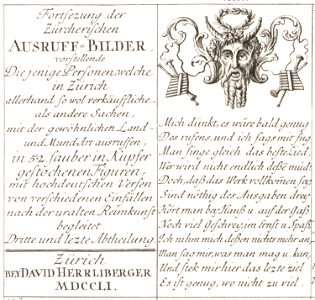 Fortsezung der
Zürcherischen
AUSRUFF-BILDER.
vorstellende
Diejenige Personen, welche
in Zürich
allerhand so wol verkäuffliche,
als andere Sachen,
mit der gewöhnlichen Land-
und Mundart ausruffen,
in 52. sauber in Kupfer
gestochenen Figuren,
mit hochdeütschen Versen
von verschiedenen Einfällen
nach der uralten Reimkunst
begleitet.
Dritte und lezte Abtheilung
Zürich
BEY DAVID HERRLIBERGER
MDCCLI.
Mich dünkt, es wäre bald genug
Des rufens, und ich sags mit fug,
Man singe gleich das beste Lied,
Wir wird nicht endlich deße müd?
Doch, daß das Werk vollkomen sey,
Sind nöthig des Ausgaben drey,
Hört man bey Hauß u. auf der Gaß
Noch viel Geschrey, im Ernst u. Spaß.
Ich nihm mich deßen nichts mehr an,
Man sag mir, was man mag u. kan,
Und stek mir hier das lezte ziel
Es ist genug, wo nicht zu viel.